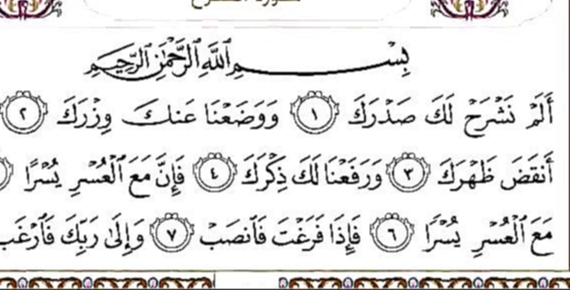 بِسْمِ ٱللَّهِ ٱلرَّحْمَٰنِ ٱلرَّحِيمِ
أَلَمْ نَشْرَحْ لَكَ صَدْرَكَ ١ وَوَضَعْنَا عَنكَ وِزْرَكَ ٢
أَنقَضَ ظَهْرَكَ ٣ وَرَفَعْنَا لَكَ ذِكْرَكَ ٤ فَإِنَّ مَعَ ٱلْعُسْرِ يُسْرًا
مَعَ ٱلْعُسْرِ يُسْرًا ٦ فَإِذَا فَرَغْتَ فَٱنصَبْ ٧ وَإِلَىٰ رَبِّكَ فَٱرْغَب